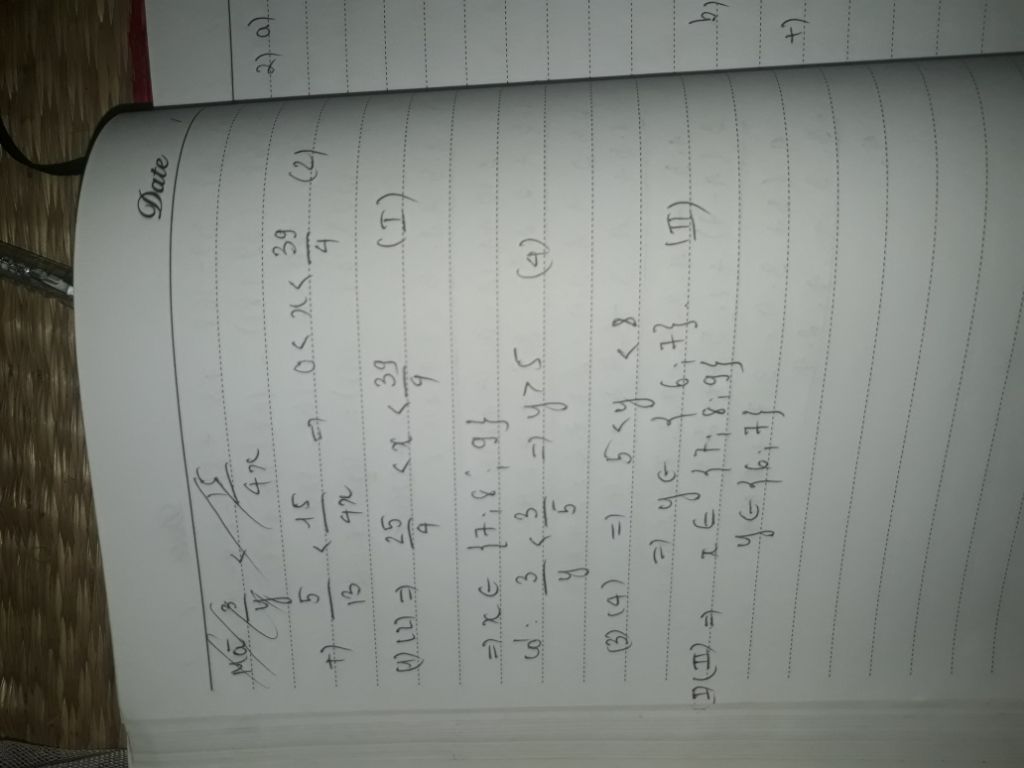 Date
Mà 3/y < 15/4x
+) 5/13 < 15/4x => 0 < x < 39/4 (2)
(1) (2) => 25/4 < x < 39/9 (I)
=> x ∈ {7; 8; 9}
3/y < 3/5 => y > 5 (4)
(3) (4) => 5 < y < 8
=> y ∈ {6; 7} (II)
(I) (II) => x ∈ {7; 8; 9}
y ∈ {6; 7}
2) a)
b)
+)